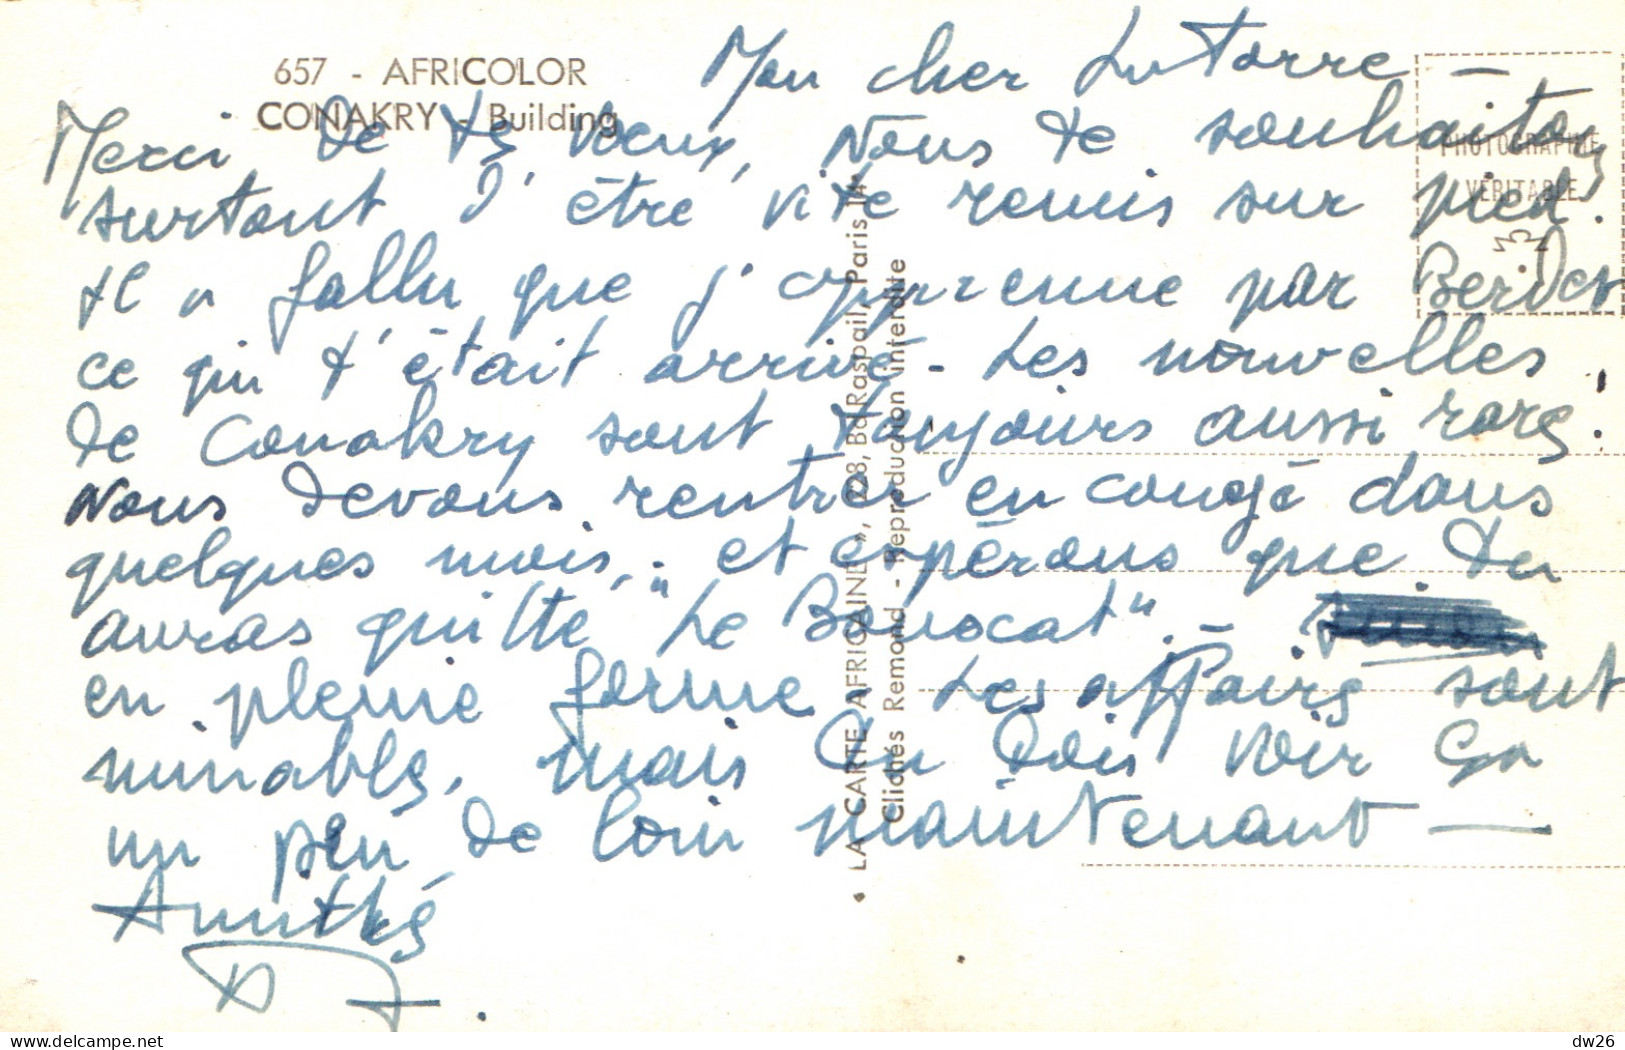 657 - AFRICOLOR
CONAKRY - Building
PHOTOGRAPHIE
VERITABLE
LA CARTE AFRICAINE », 228, Bd Raspail, Paris 14e
Clichés Remond - Reproduction interdite
Mon cher Latorre -
Merci de tes voeux, Nous te souhaitons
surtout d'être vite remis sur pied.
Il a fallu que j'apprenne par
ce qui t'était arrivé - Les nouvelles
de Conakry sont toujours aussi rares.
Nous devons rentrer en congé dans
quelques mois, et espérons que tu
auras quitté "Le Bouscat". -
en pleine forme. Les affaires sont
minables, mais tu dois voir ça
un peu de loin maintenant -
Amitiés
dw26